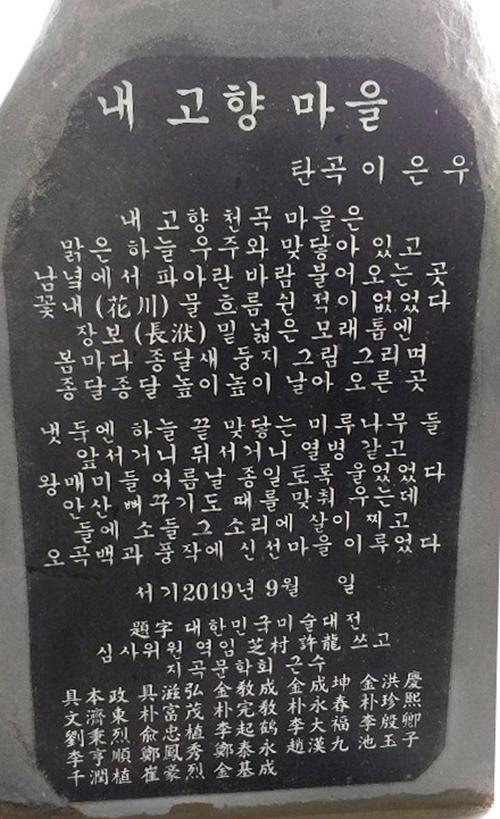 내 고향 마을
탄곡 이은우
내 고향 천곡 마을은
맑은 하늘 우주와 맞닿아 있고
남녘에서 파아란 바람 불어 오는 곳
꽃내 (花川) 물 흐름 쉰 적이 없었다
장보 (長洑) 밑 넓은 모래 톱엔
봄마다 종달새 둥지 그림 그리며
종달종달 높이높이 날아 오른 곳
냇둑엔 하늘 끝 맞닿는 미루나무 들
앞서거니 뒤서거니 열병 갈고
왕매미들 여름날 종일토록 울었었다
안산 뻐꾸기도 때를 맞춰 우는데
들에 소들 그 소리에 살이 찌고
오곡백과 풍작에 신선마을 이루었다
서기2019년 9월 일
題字 대한민국미술대전
심사위원 역임 芝村 許龍 쓰고
지곡문학회 근수
具本政 具滋弘 金敎成 金成坤 金洪慶
文濟東 朴富茂 朴完敎 朴永春 朴珍熙
劉秉烈 兪忠植 李起鶴 李大福 李殷卿
李亨順 鄭鳳秀 鄭泰永 趙漢九 池玉子
千潤植 崔豪烈 金基成